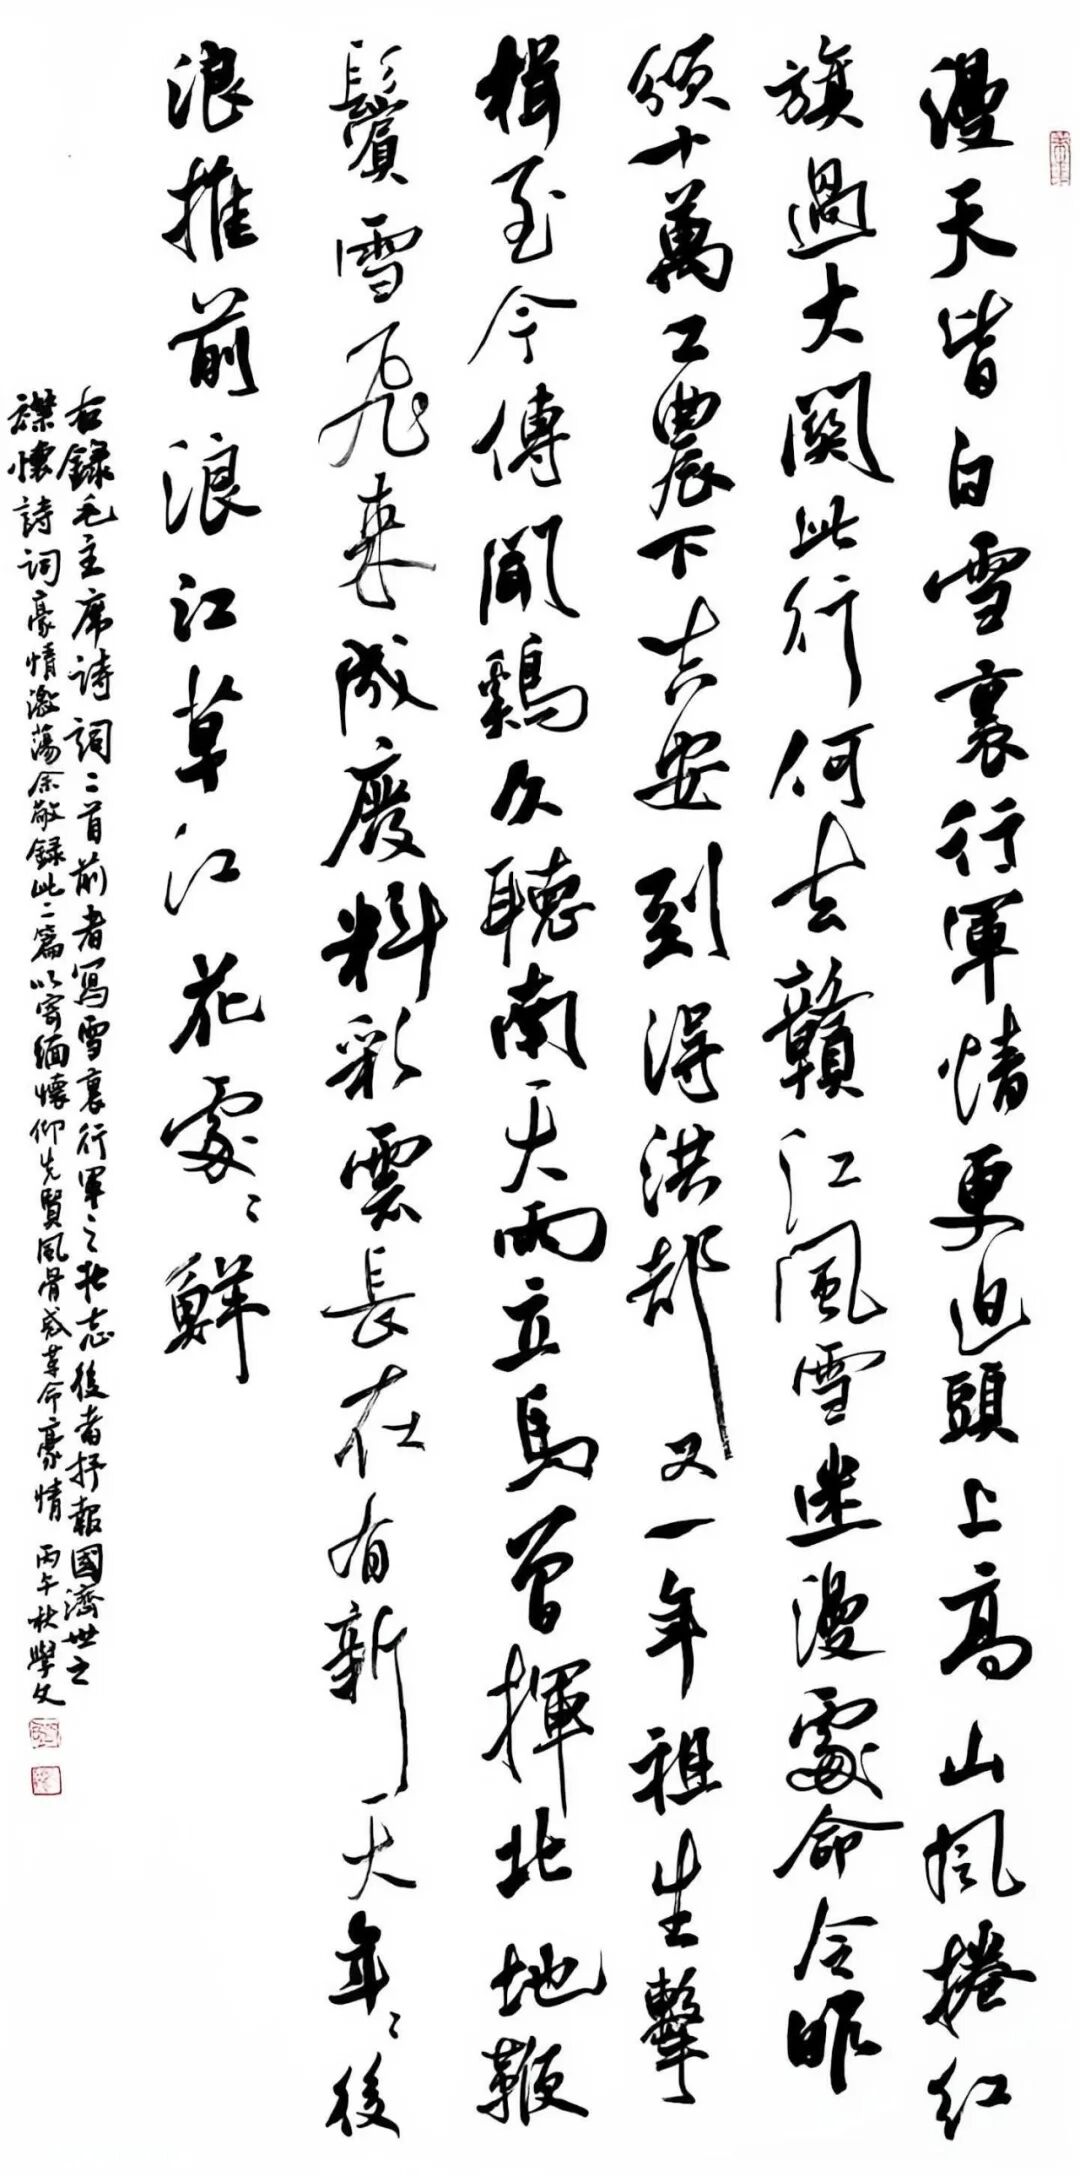 漫天皆白雪裏行軍情更迫頭上高山風捲紅
旗過大關此行何去贛江風雪迷漫處命令昨
頒十萬工農下吉安到得洪都又一年祖生擊
楫至今傳聞鷄久聽南天雨立馬曾揮北地鞭
鬢雪飛來成廢料彩雲長在有新天年〻後
浪推前浪江草江花處〻鮮
右錄毛主席詩詞二首前者寫雪裏行軍之壯志後者抒報國濟世之
襟懷詩詞豪情激蕩余敬録此二篇以寄緬懷仰先賢風骨感革命豪情 丙午秋學文